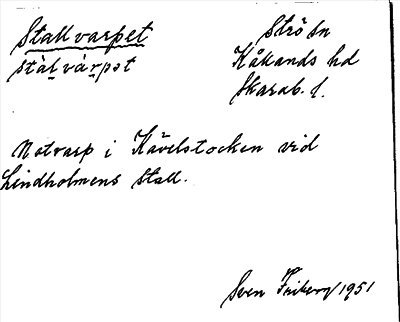 Stallvarpet
stàl̠và̠r̠pət
Strö sn
Kåkands hd
Skarab. l.
Notvarp i Kävelstocken vid
Lindholmens Stall.
Sven Friberg 1951